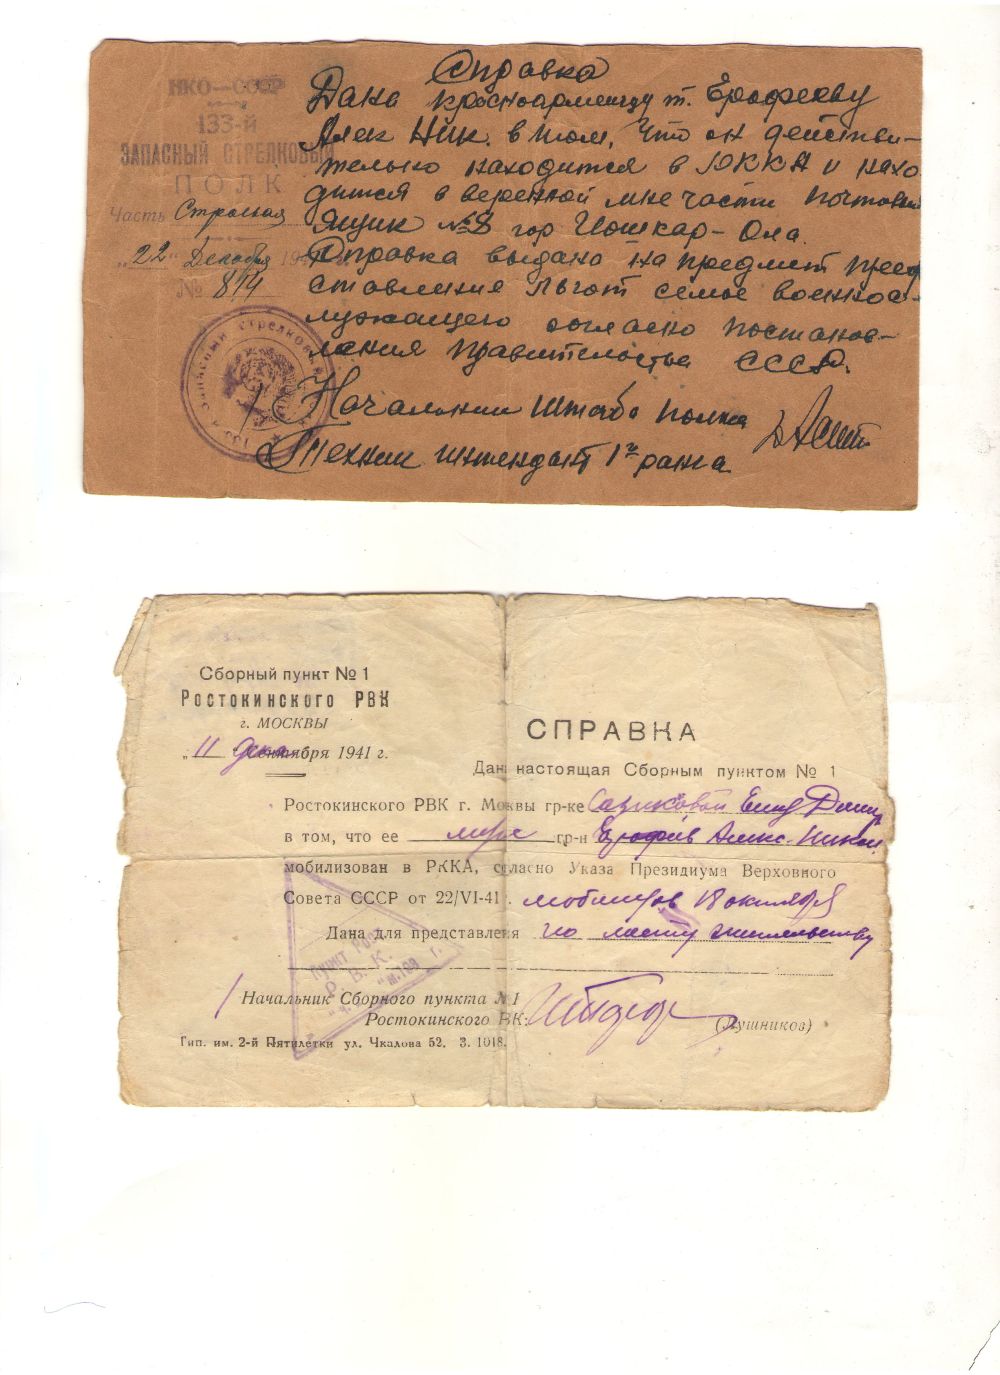 НКО—СССР
133-й
ЗАПАСНЫЙ СТРЕЛКОВЫЙ
ПОЛК
Часть Строевая
"22" Декабря 194
№ 814
Справка
Дана красноармейцу т. Ерофееву
Алек Ник. в том, что он действи-
тельно находится в РККА и нахо
дится в веренной мне части почтовый
Ящик №8 гор Йошкар-Ола.
Справка выдана на предмет пред
ставления льгот семье военнос-
лужащего согласно постанов-
ления правительства СССР.
Начальник Штаба полка
Техник интендант 1го ранга
Сборный пункт № 1
РОСТОКИНСКОГО РВК
г. МОСКВЫ
"11" дека сентября 1941 г.
СПРАВКА
Дана настоящая Сборным пунктом № 1
Ростокинского РВК г. Москвы гр-ке
в том, что ее муж гр-н Ерофеев Алекс. Никол.
мобилизован в РККА, согласно Указа Президиума Верховного
Совета СССР от 22/VI-41 г. 18 октября
Дана для представления по месту жительства
Начальник Сборного пункта №1
Ростокинского РВК:
(Лушников)
Тип. им. 2-й Пятилетки ул. Чкалова 52. З. 1018.
Пункт
Р. В. К.